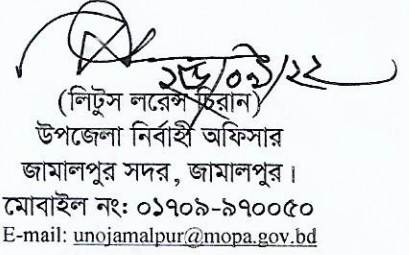 ২৮/০৯/২২
(লিটুস লরেন্স চিরান)
উপজেলা নির্বাহী অফিসার
জামালপুর সদর, জামালপুর।
মোবাইল নং: ০১৭০৯-৯৭০০৫০
E-mail: unojamalpur@mopa.gov.bd